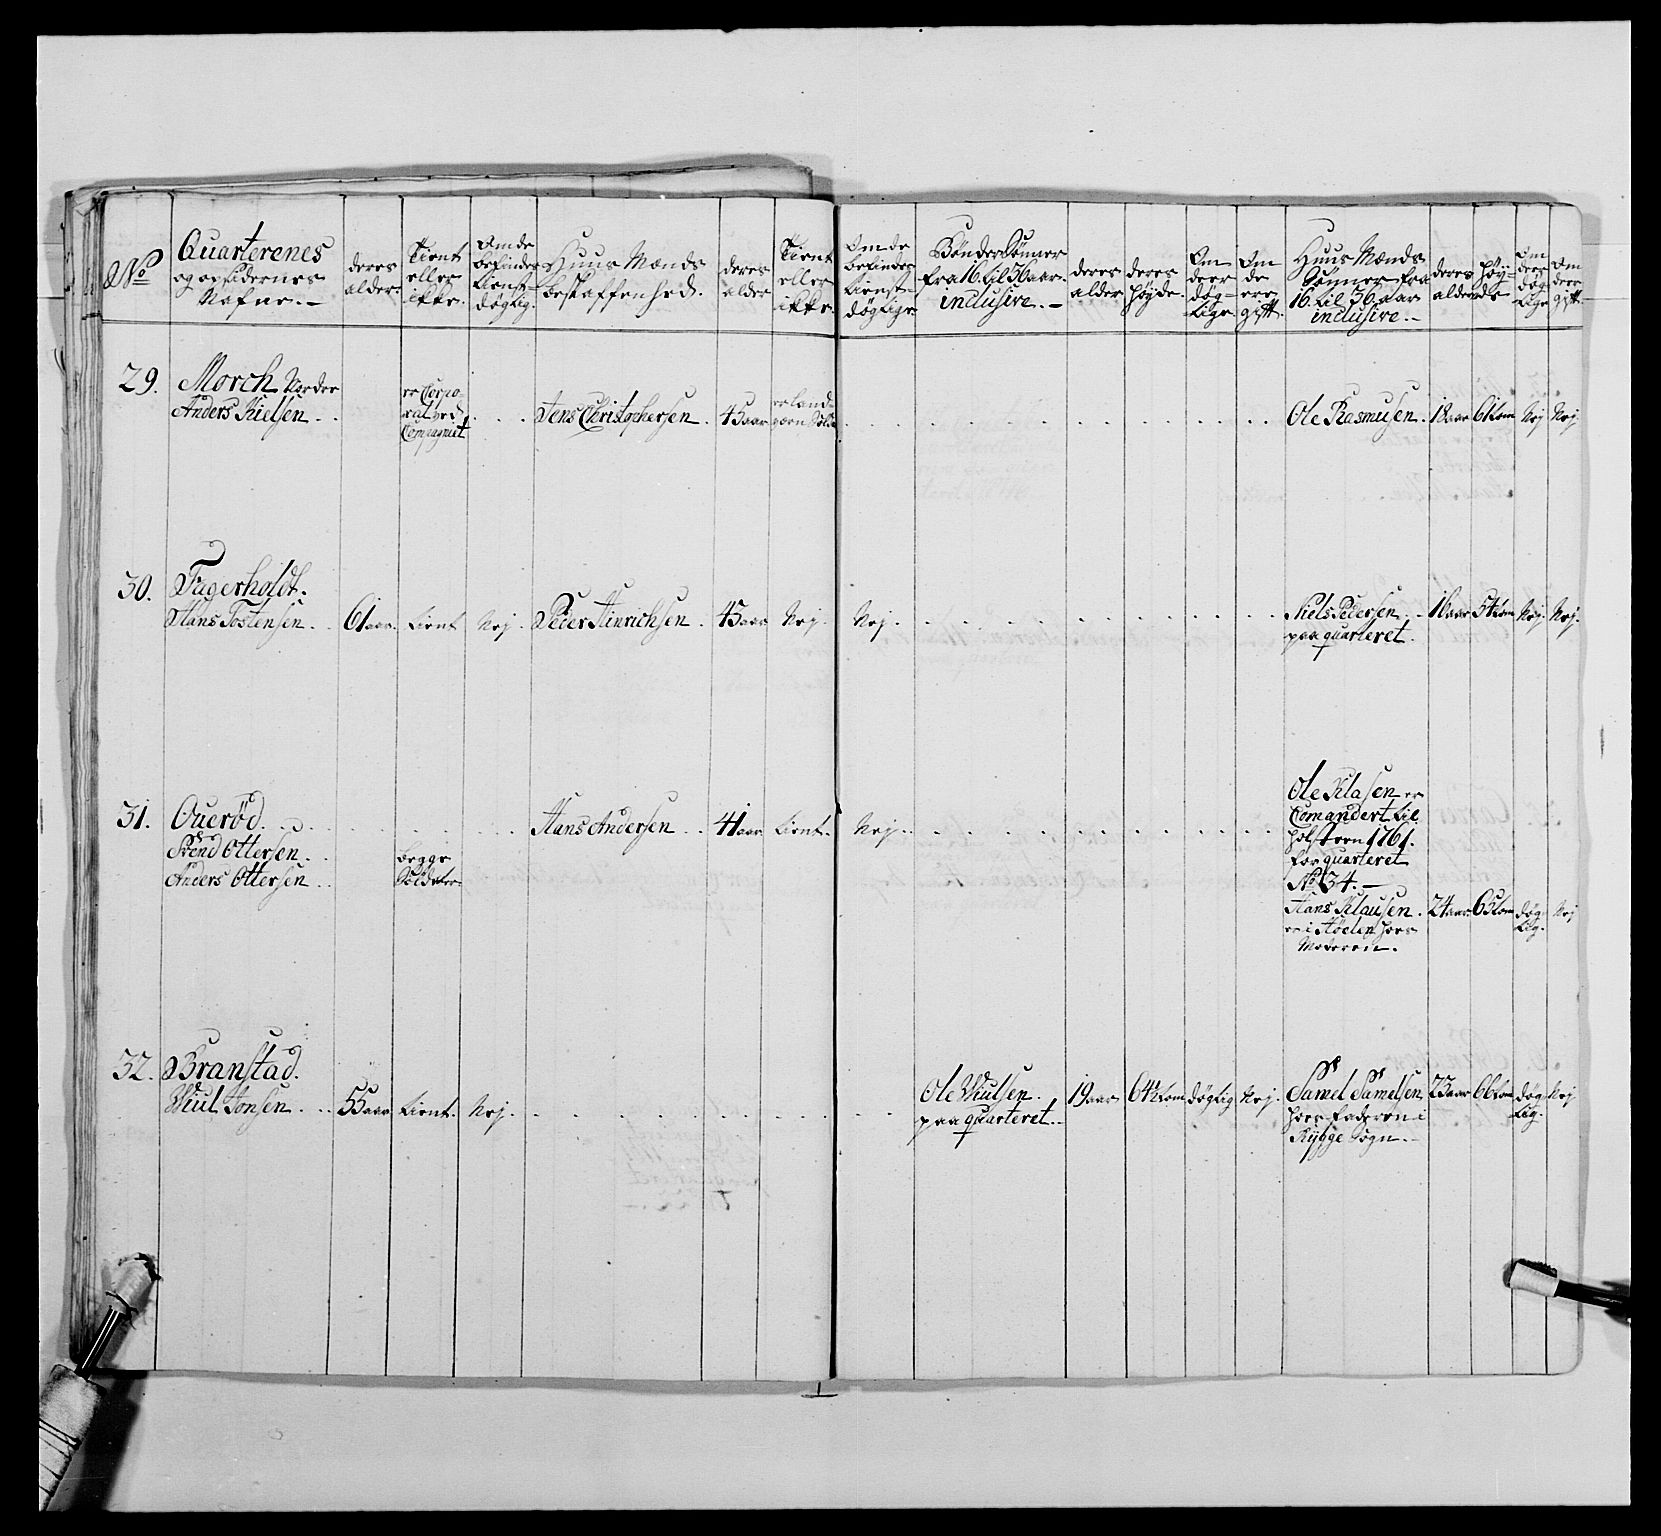 No
Quarterenes
og opsidernes
Nafne.-
deres
alder.
Tient
eller
ikke.
Om de
befindes
tienst-
døgtig.
Huus Mænds
beskaffenhed.
deres
alder
Tient
eller
ikke.
Om de
befindes
tienst-
døgtige.
Bønder Sønner
fra 16 til 36 aar.
inclusive.-
deres
alder
deres
høyde.
Om
der
døg-
tige.
Om
de
ere
gift.
Huus Mænds
Sønner fra
16. til 36 aar
inclusive.-
deres
alder
høy-
de
Om
der
døg
tige
Om
der
gift.
29.
Morch Nordre
Anders Nielsen.
er Corpo-
ral ved
Compagniet
Jens Christophersen.
45 aar
er land-
værn Sold:
Ole Rasmusen.
18 aar
61 tom
Nej
Nej.
30.
Fagerholdt.
Hans Tostensen.
61 aar.
tient
Nej.
Peder Hinrichsen.
45 aar
Nej.
Nej.
Niels Pedersen.
paa quarteret.
16 aar
54 tom
Nej.
Nej.
31.
Ouerød.
Svend Ottersen.
Anders Ottersen.
begge
Soldater.
Hans Andersen.
41 aar.
tient.
Nej.
Ole Klasen er
Comandert til
Holsteen 1761.
for quarteret
No 34.-
Hans Klausen.
er i Høelen hoes
Moderen.
24 aar
65 tom
døg-
tig.
Nej
32.
Branstad.
Wiul Jonsen.
55 aar
tient.
Nej.
Ole Wiulsen.
paa quarteret.-
19 aar
64½ tom
døgtig
Nej.
Samel Samelsen
hoes faderen i
Rygge Sogn.-
23 aar
66 tom
døg
tig.
Nej